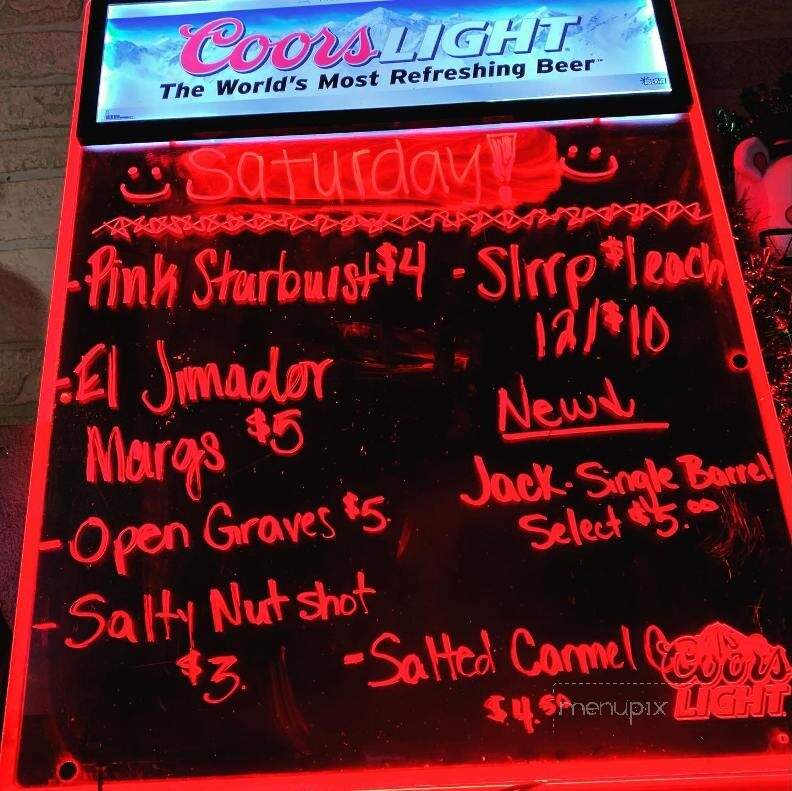 Coors LIGHT
The World's Most Refreshing Beer™
Saturday!
-Pink Starburst $4
-El Jimador
Margs $5
-Open Graves $5.
-Salty Nut shot
$3.
-Slrrp $1 each
12/$10
New↓
Jack-Single Barrel
Select $5.00
-Salted Carmel
$4.50
menupix
Coors
LIGHT